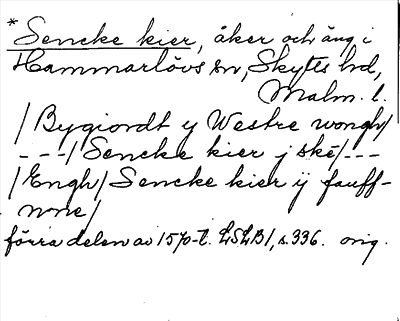 * Sencke kier, åker och äng i
Hammarlövs sn, Skytts hd,
Malm. l.
/ Bygiordt y Westre wongh/
---/ Sencke kier j ské/---
/Engh/ Sencke kier ij fauff-
nne/
förra delen av 1570-t. LSLB1, s. 336. orig.